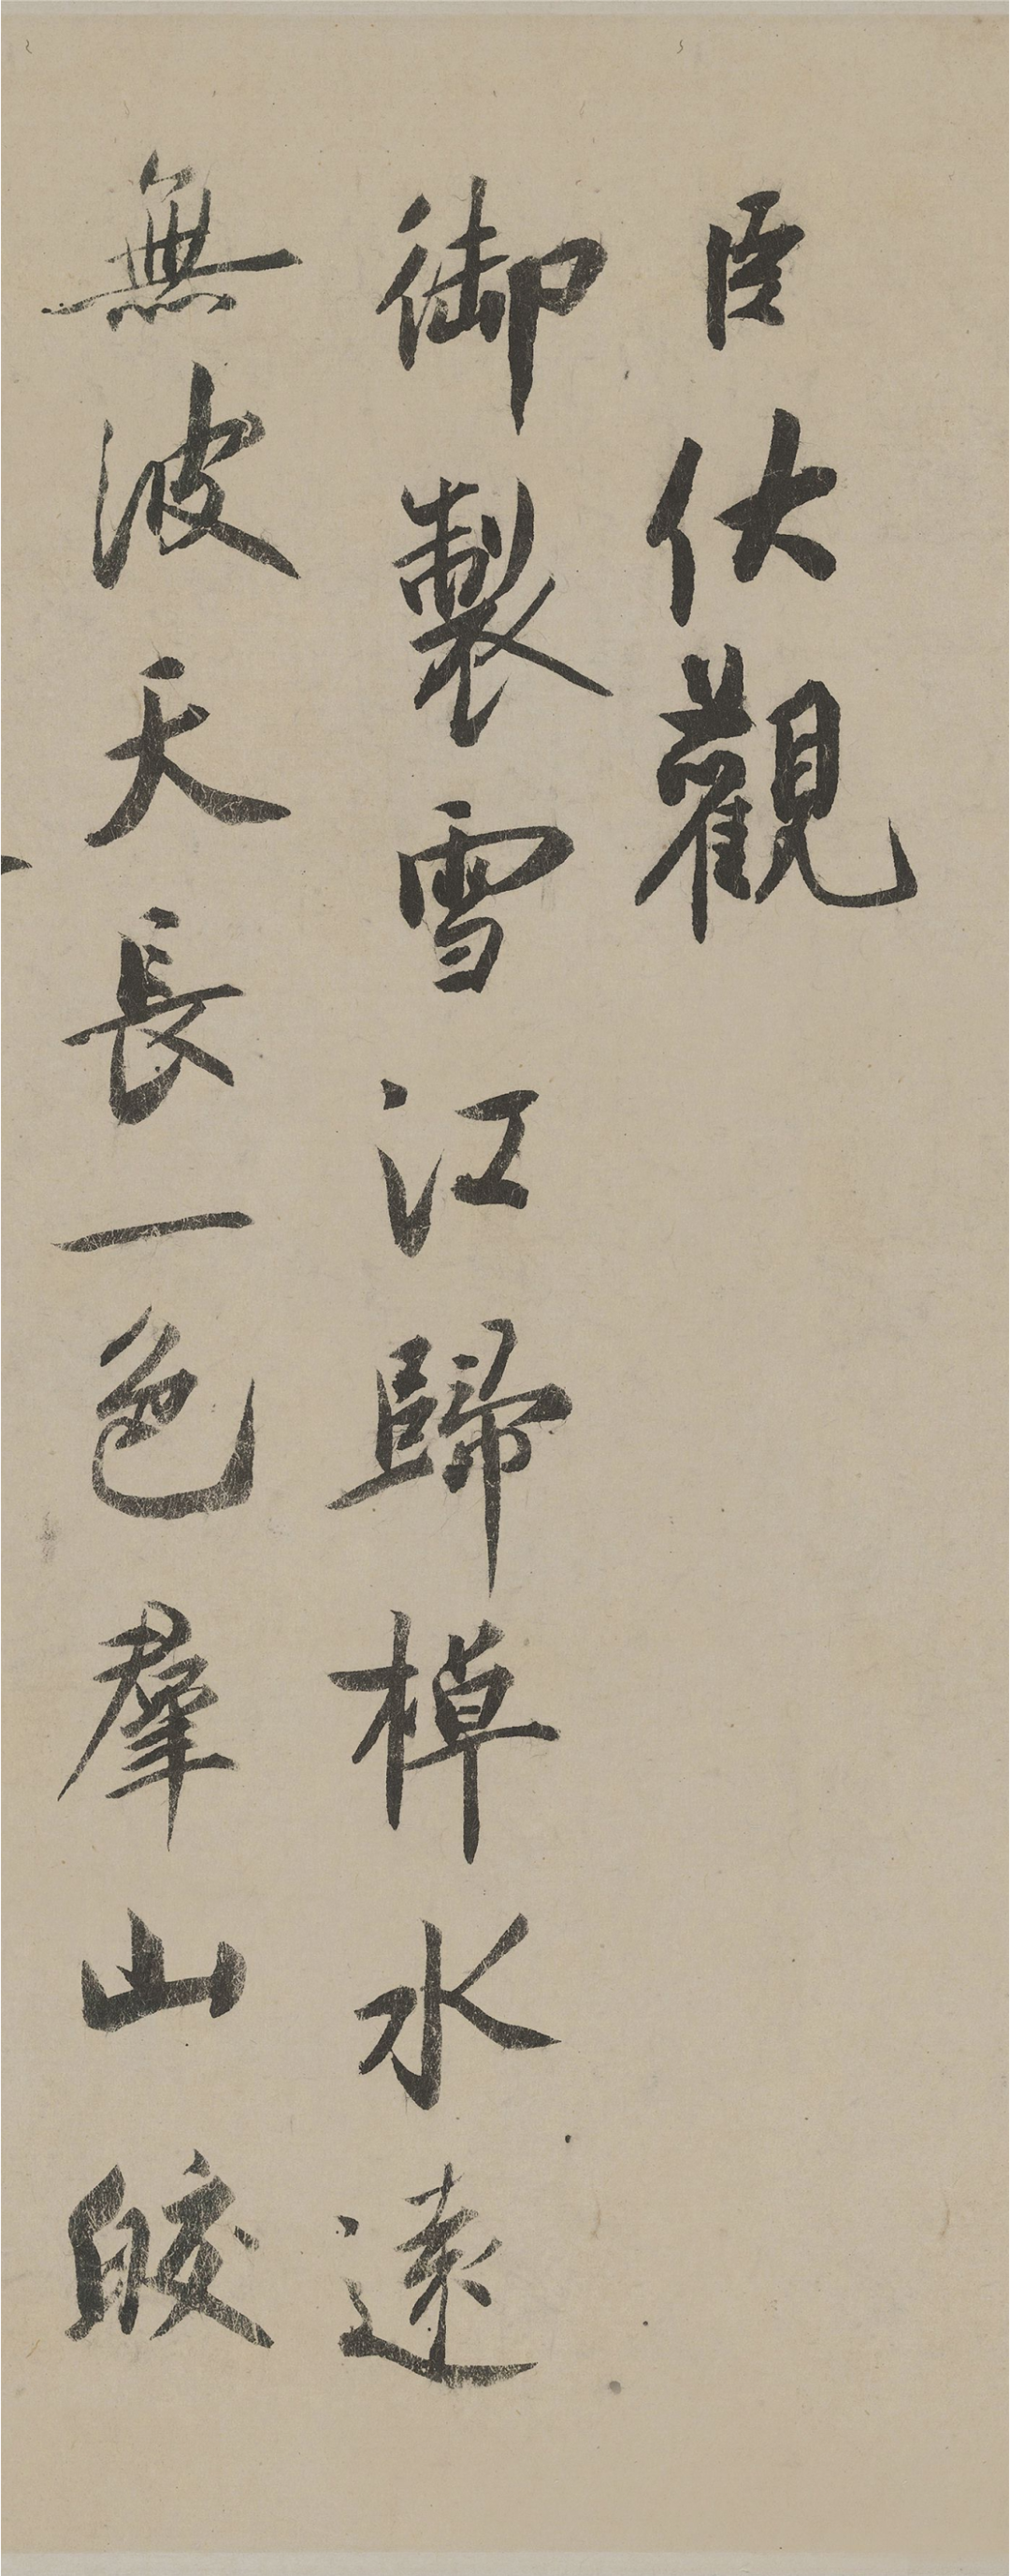 臣伏觀
御製雪江歸棹水遠
無波天長一色羣山皎